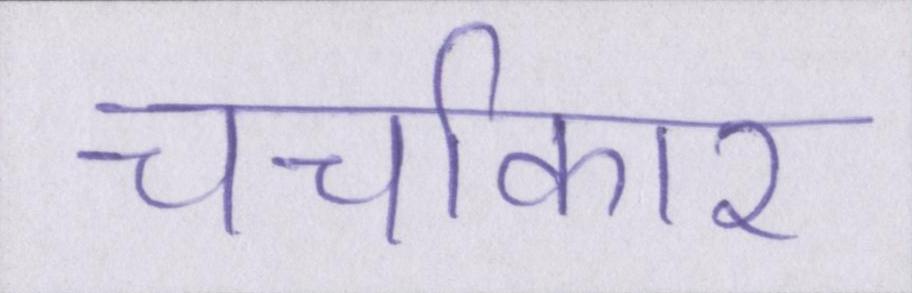 चर्चाकार